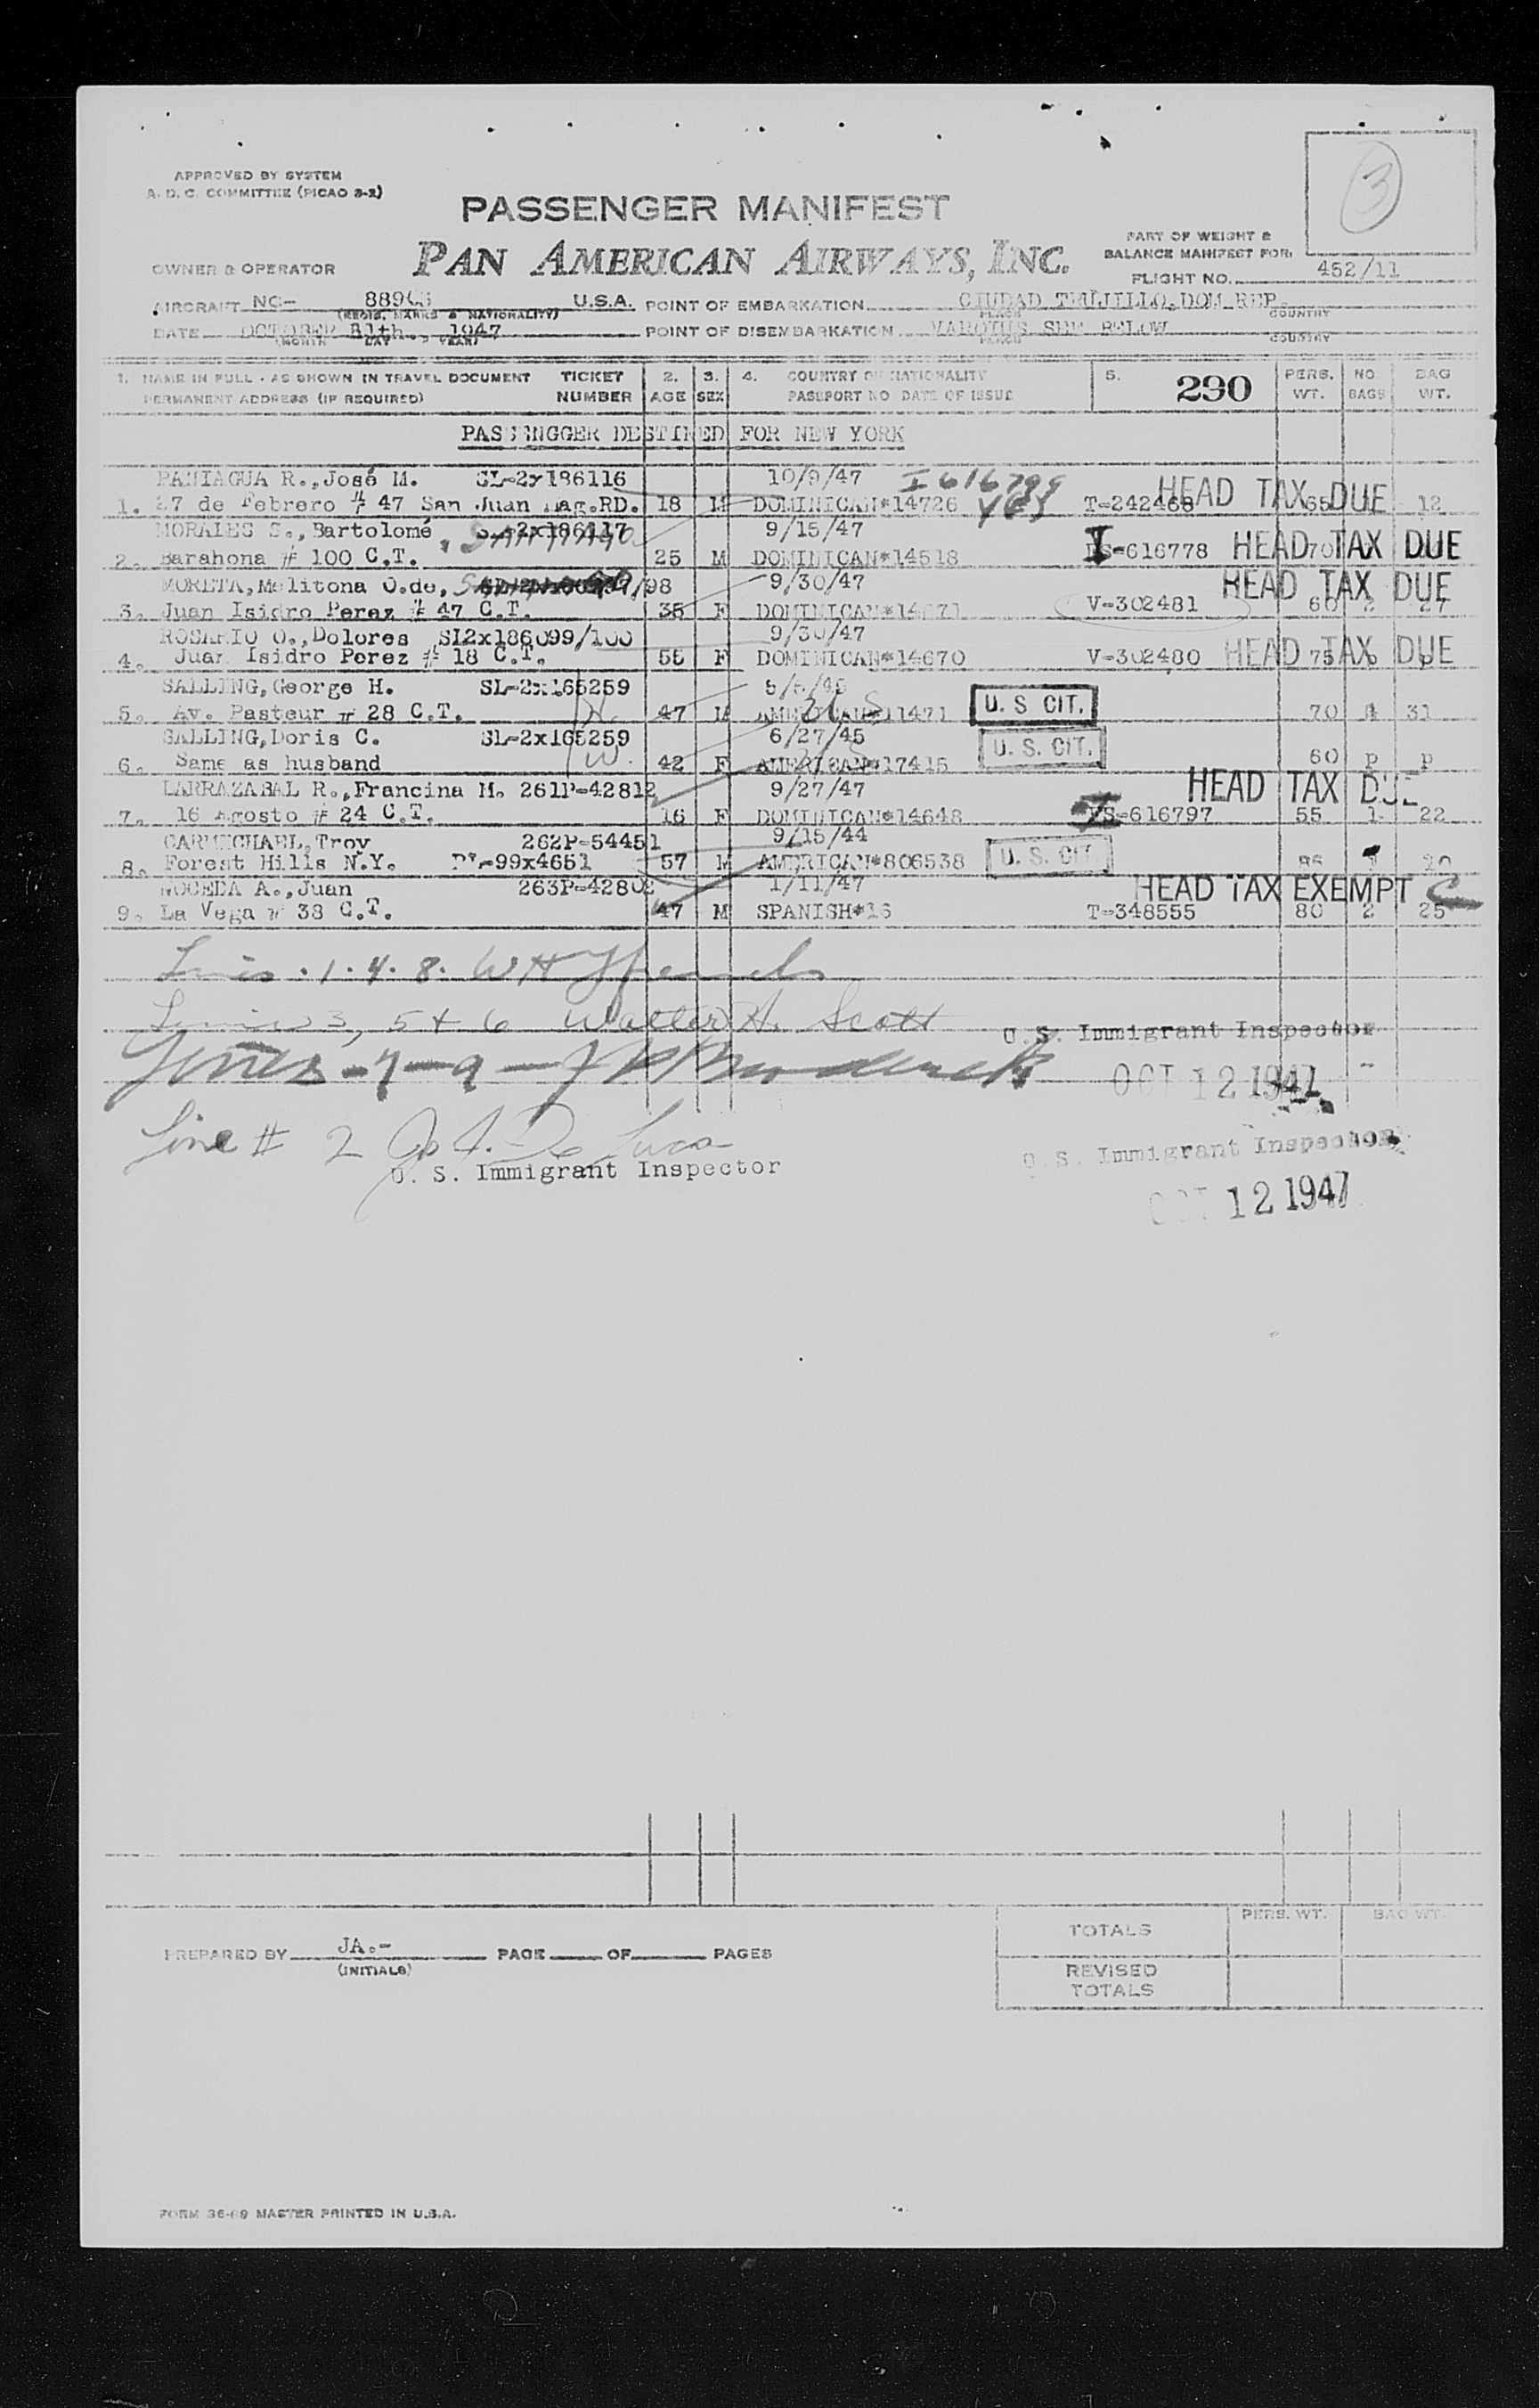 APPROVED BY SYSTEM
A. D. C. COMMITTEE (PICAO 3-2)
3
PASSENGER MANIFEST
PAN AMERICAN AIRWAYS, INC.
PART OF WEIGHT &
BALANCE MANIFEST FOR:
OWNER & OPERATOR
FLIGHT NO. 452/11
AIRCRAFT NC- U.S.A. POINT OF EMBARKATION CIUDAD TRUJILLO, DOM REP.
(REGIS. MARKS & NATIONALITY) PLACE COUNTRY
DATE OCTOBER 1947 POINT OF DISEMBARKATION VARIOUS SEE BELOW
(MONTH DAY YEAR) PLACE COUNTRY
1. NAME IN FULL - AS SHOWN IN TRAVEL DOCUMENT TICKET 2. 3. 4. COUNTRY OF NATIONALITY 5. 290 PERS. NO. BAG
PERMANENT ADDRESS (IF REQUIRED) NUMBER AGE SEX PASSPORT NO DATE OF ISSUE WT. BAGS WT.
PASSENGGER DESTINED FOR NEW YORK
PANIAGUA R., José M. SL-2x186116 10/9/47 I 616799
1. 27 de Febrero # 47 San Juan Mag.RD. 18 M DOMINICAN*14726 T-242468 HEAD TAX DUE 65 12
MORALES S., Bartolomé, SL-2x186117 SANTIAGO 9/15/47
2. Barahona # 100 C.T. 25 M DOMINICAN*14518 I S-616778 HEAD TAX DUE 70
MORETA, Melitona O.de, /98 9/30/47 HEAD TAX DUE
3. Juan Isidro Perez # 47 C.T. 35 F DOMINICAN*14671 V-302481 60 2 27
ROSARIO O., Dolores SL2x186099/100 9/30/47
4. Juan Isidro Perez # 18 C.T. 55 F DOMINICAN*14670 V-302480 HEAD TAX DUE 75 p p
SALLING, George H. SL-2x165259 H.
5. Av. Pasteur # 28 C.T. 47 M AMERICAN*11471 U. S CIT. 70 4 31
SALLING, Doris C. SL-2x165259 W. 6/27/45
6. Same as husband 42 F AMERICAN*17415 U. S. CIT. 60 p p
LARRAZABAL R., Francina M. 261P-42812 9/27/47 HEAD TAX DUE
7. 16 Agosto # 24 C.T. 16 F DOMINICAN*14648 I S-616797 55 1 22
CARMICHAEL, Troy 262P-54451 9/15/44
8. Forest Hills N.Y. 99x4651 57 M AMERICAN*806538 U. S. CIT. 20
NOCEDA A., Juan 263P-42802 1/11/47 HEAD TAX EXEMPT
9. La Vega # 38 C.T. 47 M SPANISH*16 T-348555 80 2 25
Lines . 1 . 4 . 8. W H
Lines 3, 5 + 6 Walter H. Scott
U. S. Immigrant Inspector
Lines - 7 - 9 -
OCT 12 1947
Line # 2 Jo A. De Luca
U. S. Immigrant Inspector
U. S. Immigrant Inspector
OCT 12 1947
PERS. WT. BAG WT.
TOTALS
PREPARED BY JA.- PAGE OF PAGES
(INITIALS)
REVISED
TOTALS
FORM 36-69 MASTER PRINTED IN U.S.A.